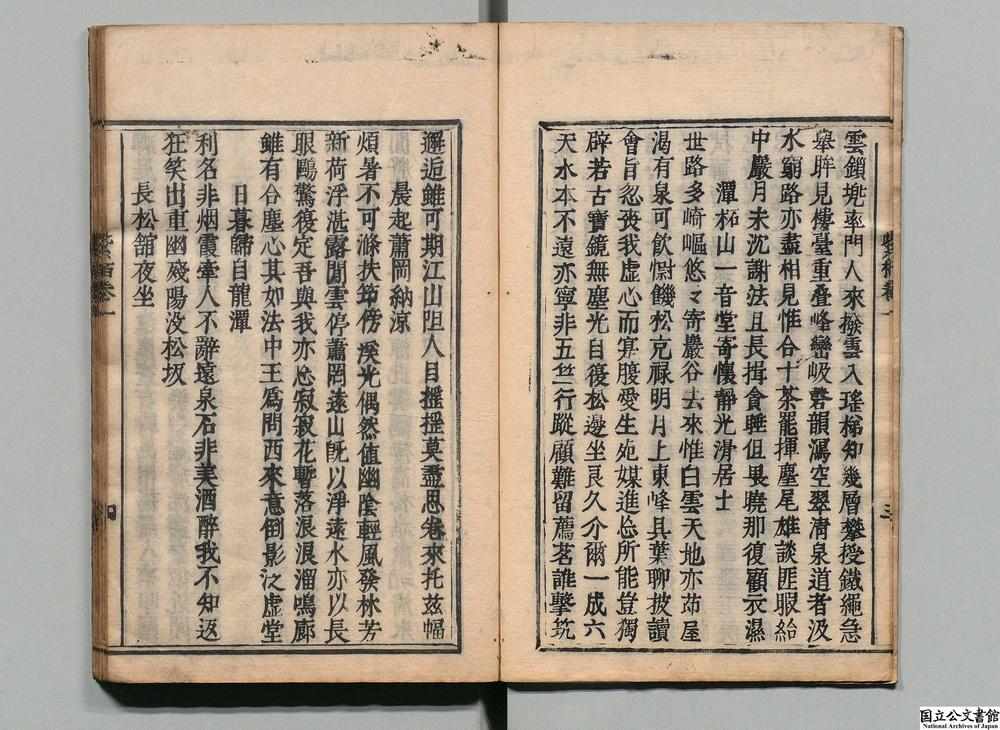 雲鎖兠率門人來撥雲入瑤梯知幾層攀援鐵繩急
舉眸見樓臺重疊峰巒岋磬韻瀉空翠清泉道者汲
水窮路亦盡相見惟合十茶罷揮麈尾雄談匪暇給
中嚴月未沉謝法且長揖貪睡但畏曉那復顧衣濕
潭柘山一音堂寄懷靜光滑居士
世路多崎嶇悠々寄嚴谷去來惟白雲天地亦茆屋
渴有泉可飲𢡟饑松充祿明月上東峰具葉聊披讀
會旨忽丧我虛心而寔腹愛生宛媒進忘所能豈獨
辟若古寶鏡無塵光自復松邊坐良久介爾一成六
天水本不遠亦寧非五竺行蹤顧難留薦茗誰擊筑
邂逅雖可期江山阻人目摇摇莫盡思卷來托茲幅
晨起蕭岡納涼
煩暑不可滌扶筇傍溪光偶然值幽陰輕風發林芳
新荷浮湛露閒雲停蕭岡遠山旣以淨遠水亦以長
眼鷗驚復定吾與我亦忘寂寂花暫落浪浪溜鳴廊
雖有合塵心其如法中王爲問西來意倒影泛虛堂
日暮歸自龍潭
利名非烟霞牽人不辭遠泉石非美酒醉我不知返
狂笑出重幽殘陽没松坂
長松舘夜坐
紫栢卷一
三
四
国立公文書館
National Archives of Japan